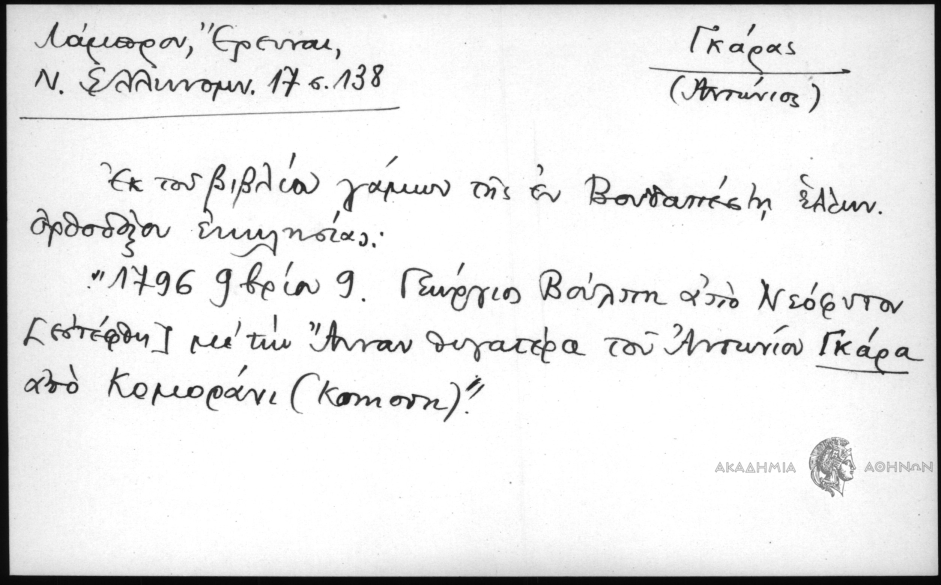 Λάμπρου, Ἔρευναι,
Ν. Ἑλληνομν. 17 σ. 138
Γκάρας
(Ἀντώνιος)
Ἐκ τοῦ βιβλίου γάμων τῆς ἐν Βουδαπέστῃ ἑλλην.
ὀρθοδόξου ἐκκλησίας:
"1796 9βρίου 9. Γεώργιος Βούλπη ἀπὸ Νεόφυτον
[ἐστέφθη] μὲ τὴν Ἄνναν θυγατέρα τοῦ Ἀντωνίου Γκάρα
ἀπὸ Κομοράνι
ΑΚΑΔΗΜΙΑ ΑΘΗΝΩΝ